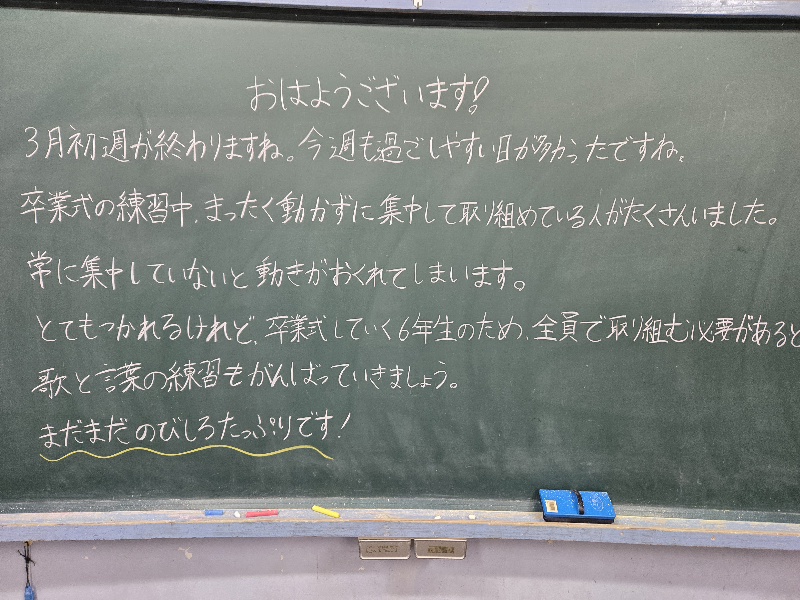 おはようございます!
3月初週が終わりますね。今週も過ごしやすい日が多かったですね。
卒業式の練習中、まったく動かずに集中して取り組めている人がたくさんいました。
常に集中していないと動きがおくれてしまいます。
とてもつかれるけれど、卒業式していく6年生のため、全員で取り組む必要があると
歌と言葉の練習もがんばっていきましょう。
まだまだのびしろたっぷりです!